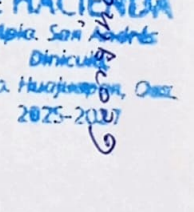 HACIENDA
Mpio. San Andrés
Dinicuiti
Huajuapan, Oax.
2025-2027